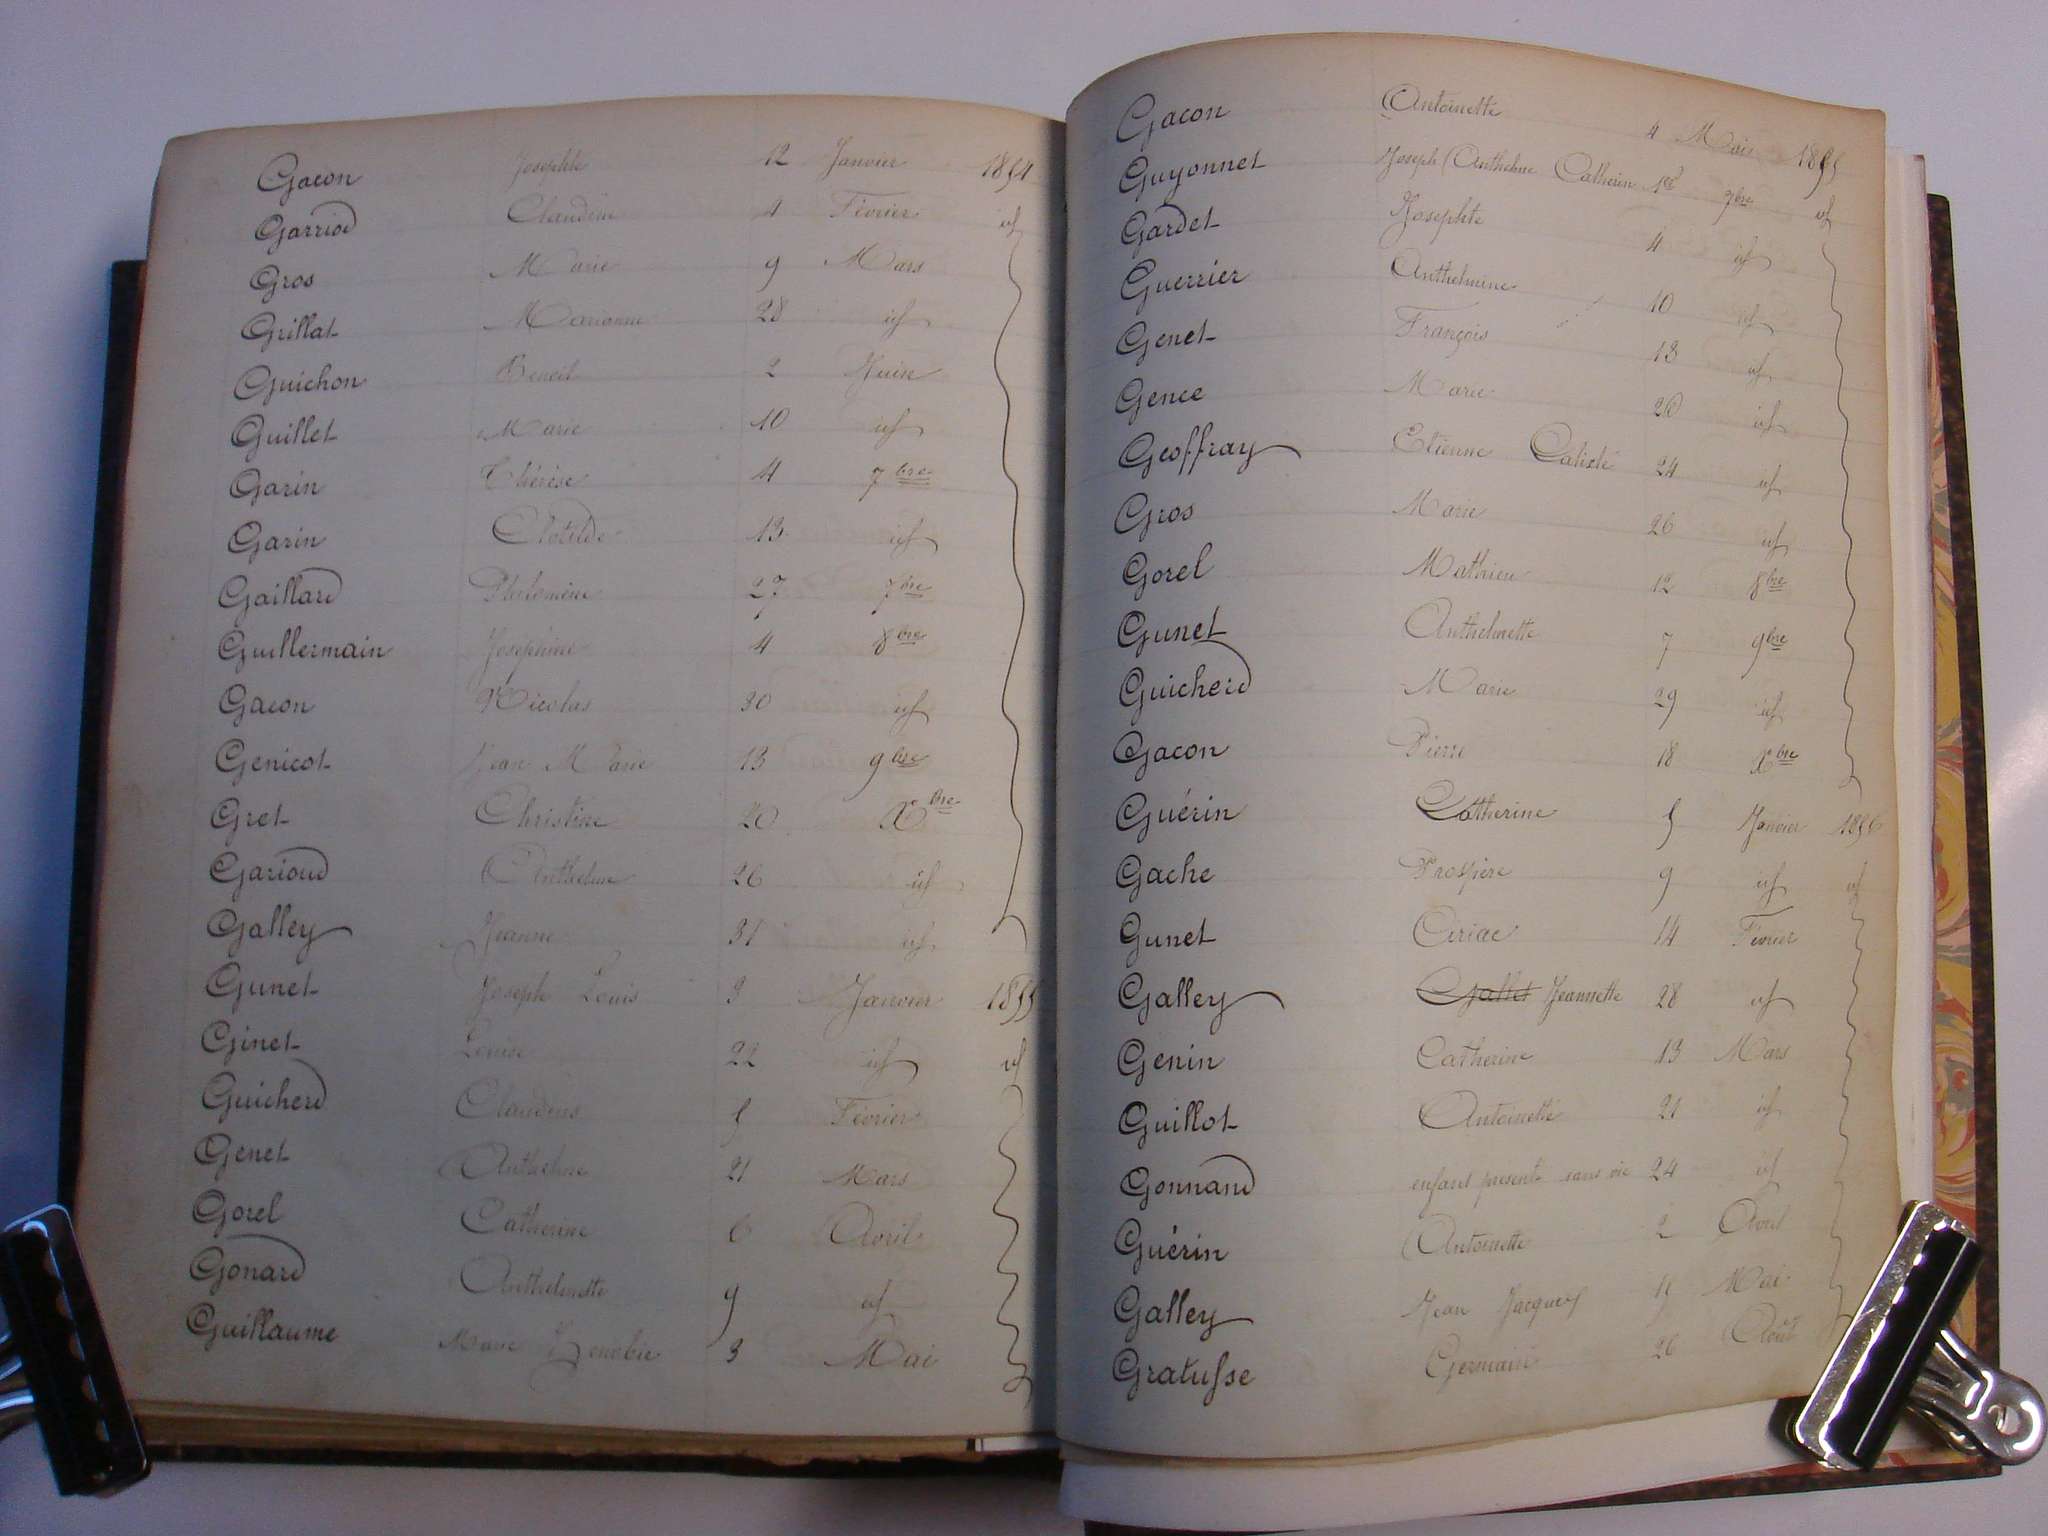 Gacon Josephte 12 Janvier 1854
Garriod Claudine 4 Février id
Gros Marie 9 Mars
Grillat Marianne 28 id
Guichon Benoit 2 Juin
Guillet Marie 10 id
Garin Thérèse 4 7bre
Garin Clotilde 13 id
Gaillard Philomène 27 7bre
Guillermain Joséphine 4 8bre
Gacon Nicolas 30 id
Genicot Jean Marie 13 9bre
Gret Christine 20 Xbre
Garioud Anthelme 26 id
Galley Jeanne 31 id
Gunet Joseph Louis 3 Janvier 1855
Ginet Louise 22 id id
Guicherd Claudius 5 Février
Genet Anthelme 21 Mars
Gorel Catherine 6 Avril
Gonard Anthelmette 9 id
Guillaume Marie Zénobie 3 Mai
Gacon Antoinette 4 Mai 1855
Guyonnet Joseph Anthelme Catherin 1er 7bre id
Gardet Josephte 4 id
Guerrier Anthelmine 10 id
Genet François 13 id
Gence Marie 20 id
Geoffray Etienne Calixte 24 id
Gros Marie 26 id
Gorel Mathieu 12 8bre
Gunet Anthelmette 7 9bre
Guicherd Marie 29 id
Gacon Pierre 18 Xbre
Guérin Catherine 5 Janvier 1856
Gache Prospère 9 id id
Gunet Ciriac 14 Février
Galley Jeannette 28 id
Genin Catherine 13 Mars
Guillot Antoinette 21 id
Gonnand enfant présenté sans vie 24 id
Guérin Antoinette 2 Avril
Galley Jean Jacques 11 Mai
Gratusse Germain 26 Août